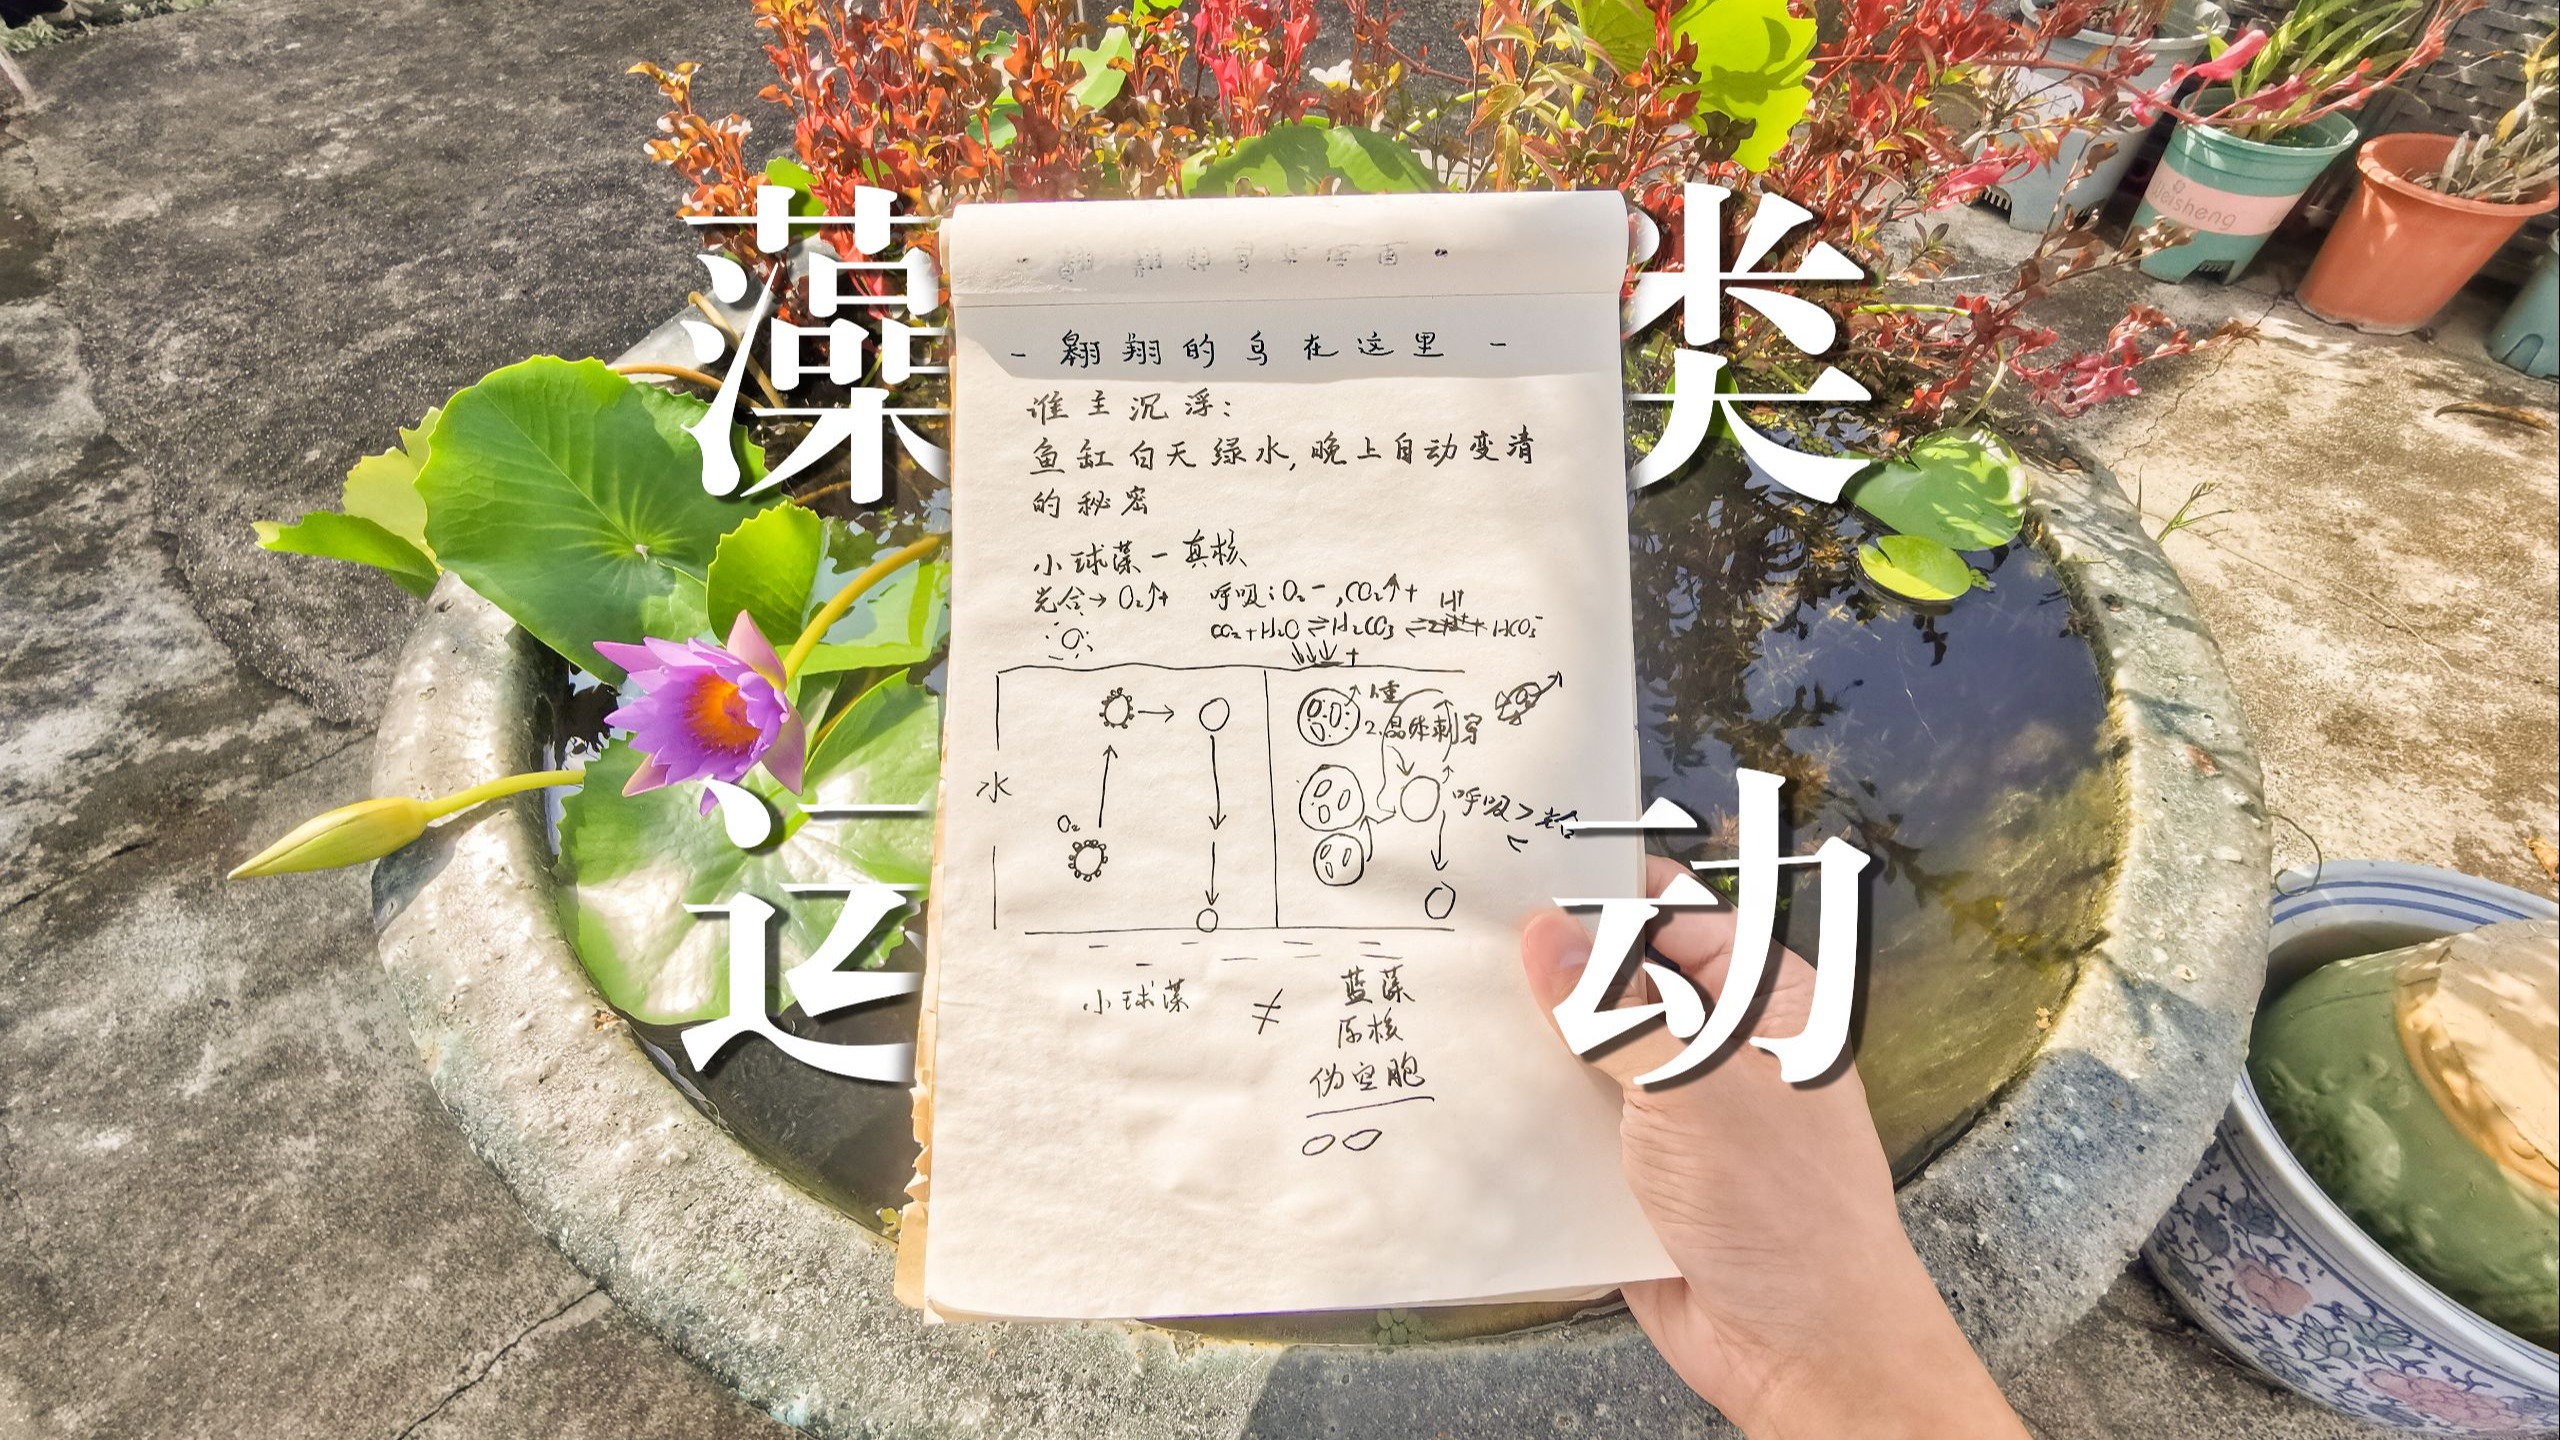 藻类
运动
- 翱翔的鸟在这里 -
谁主沉浮:
鱼缸白天绿水,晚上自动变清
的秘密
小球藻-真核
光合→O₂↑+ 呼吸:O₂-,CO₂↑+
CO₂+H₂O⇌H₂CO₃⇌H⁺+HCO₃⁻
1.重
2.晶体刺穿
水
O₂
呼吸>光合
<
小球藻 ≠ 蓝藻
原核
伪空胞